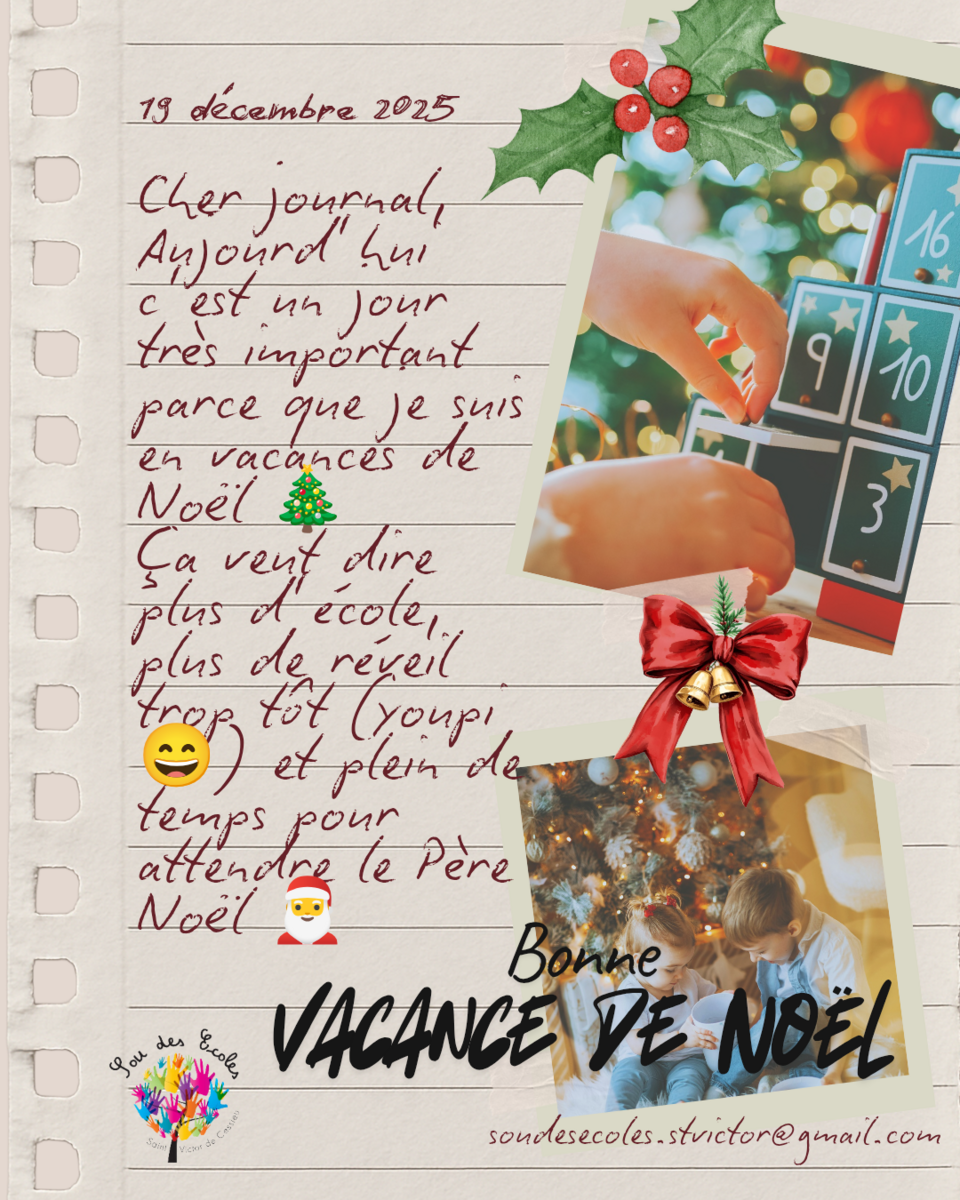 19 décembre 2025
Cher journal,
Aujourd'hui
c'est un jour
très important
parce que je suis
en vacances de
Noël 🎄
Ça veut dire
plus d'école,
plus de réveil
trop tôt (youpi
😄) et plein de
temps pour
attendre le Père
Noël 🎅
16
9
10
3
Bonne
VACANCE DE NOËL
Sou des Ecoles
Saint Victor de Cessieu
soudesecoles.stvictor@gmail.com